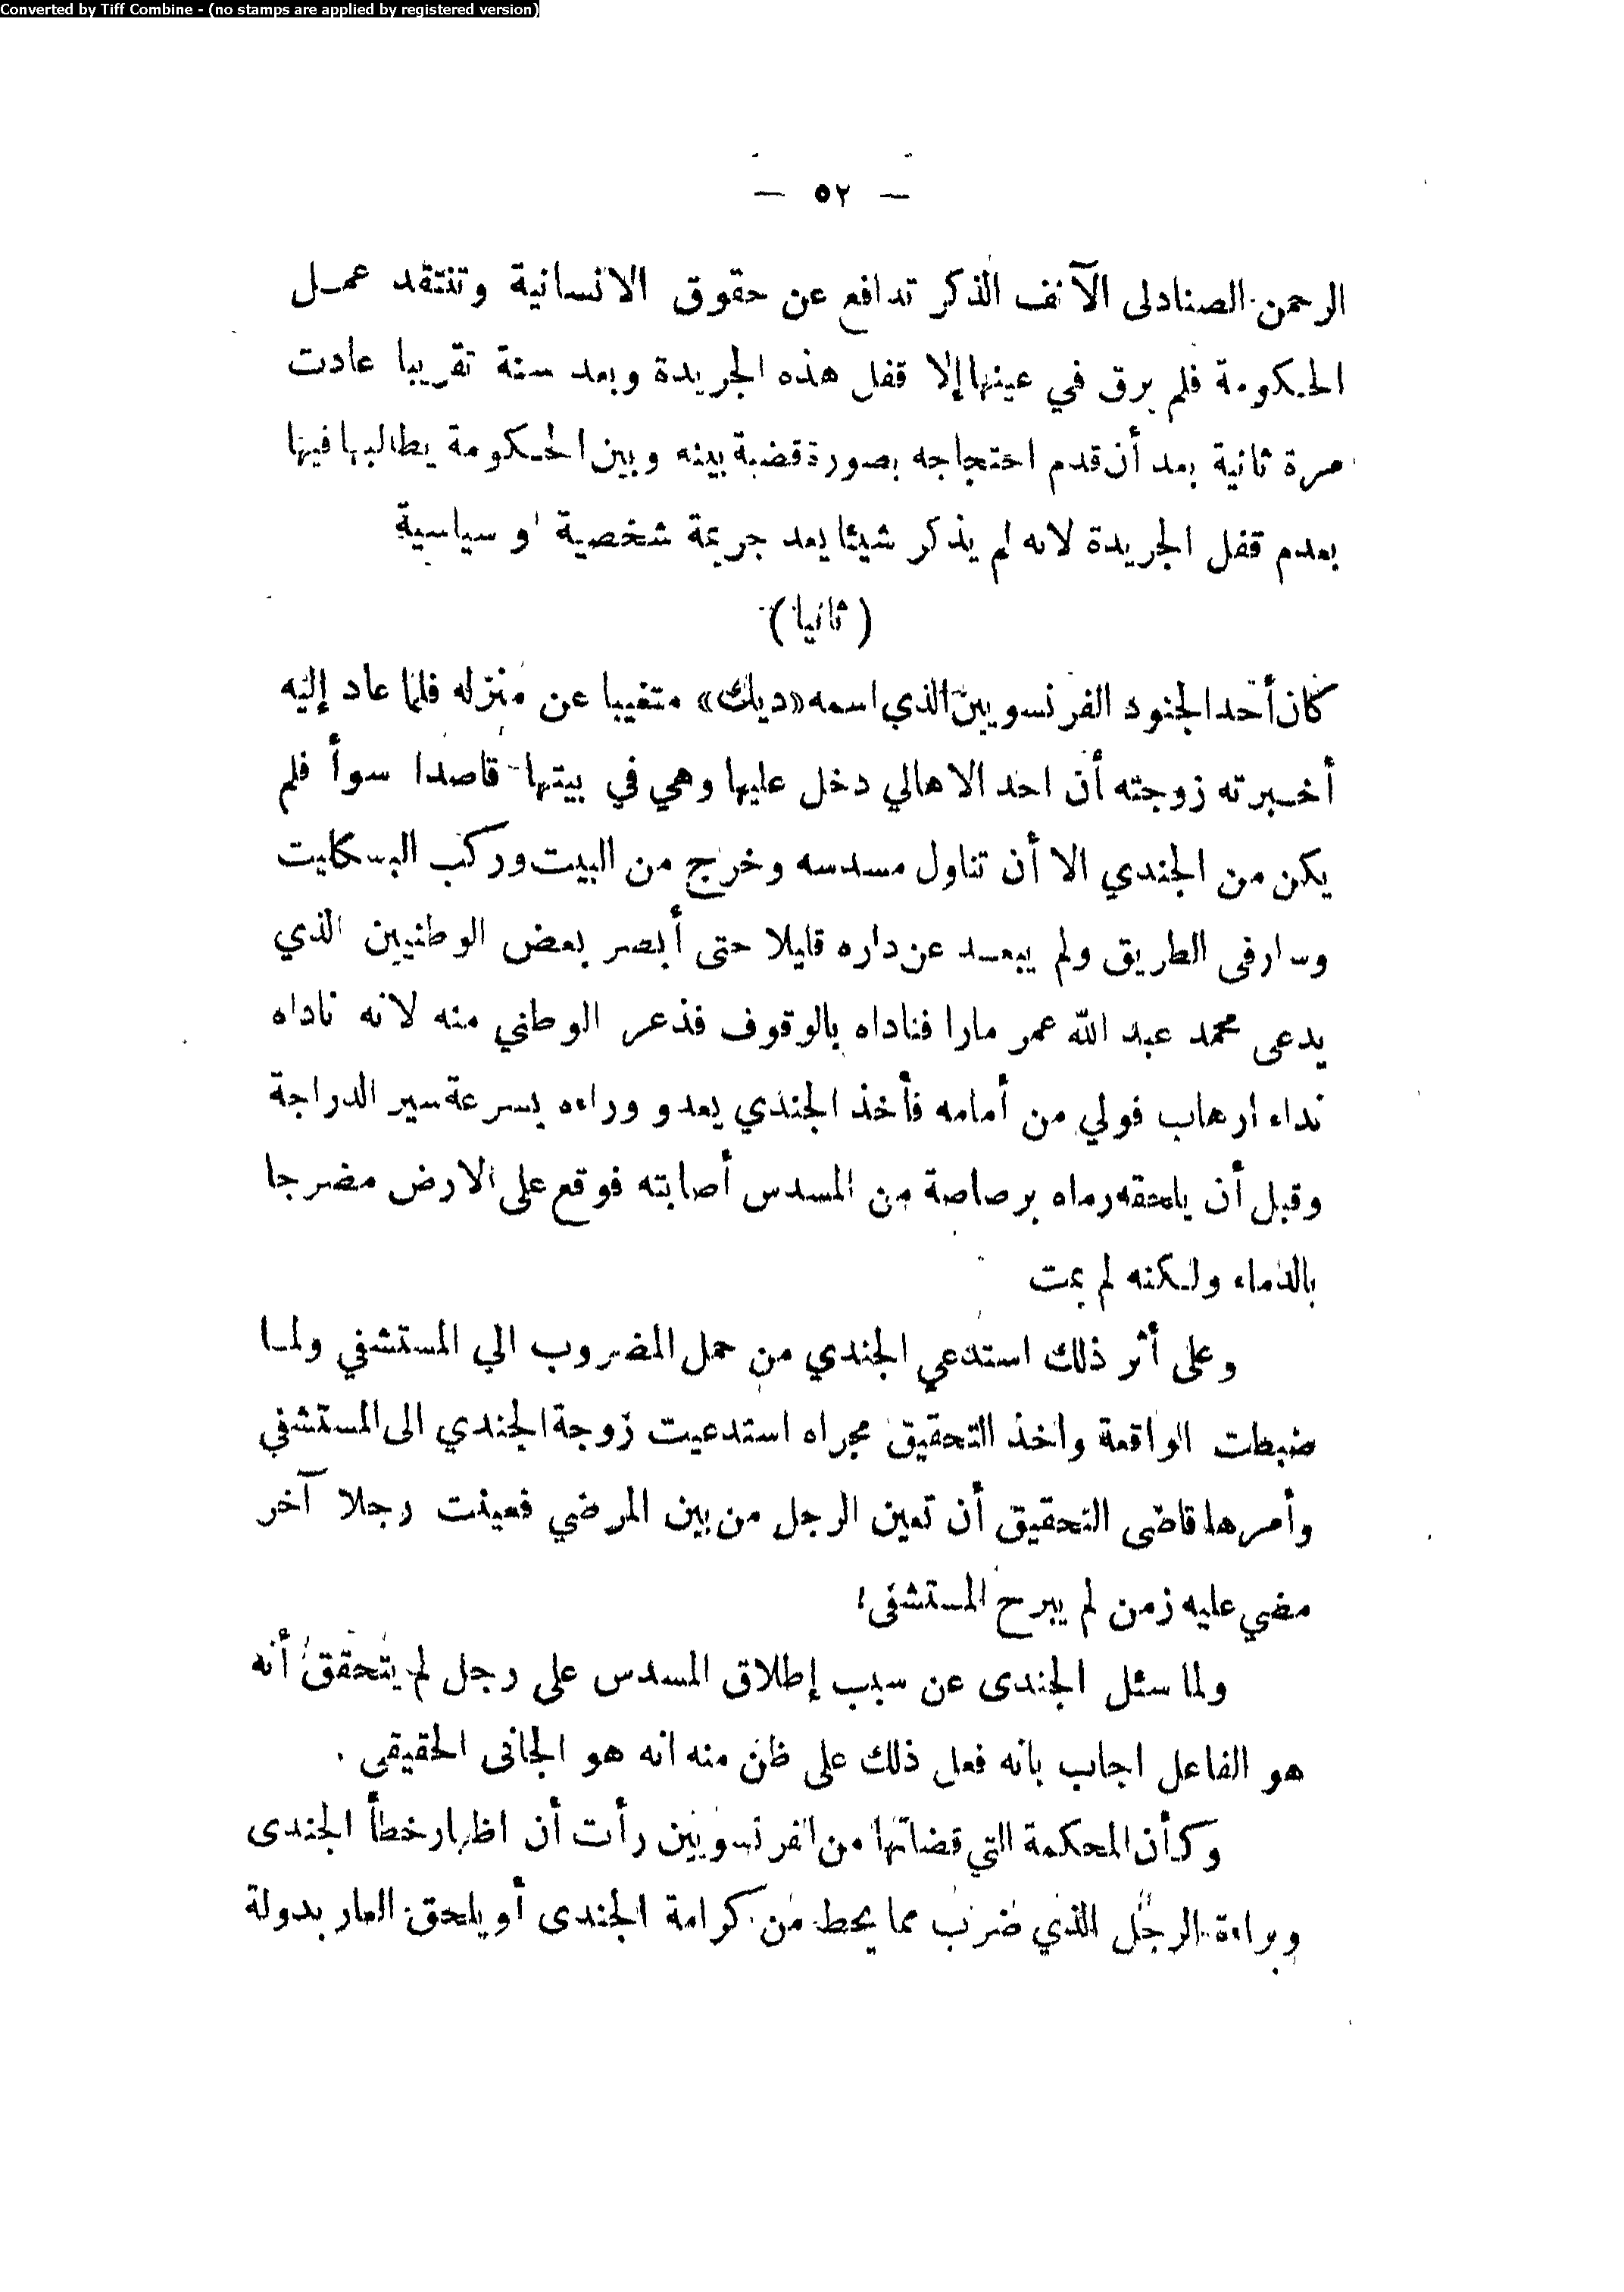 Converted by Tiff Combine - (no stamps are applied by registered version)
— ٥٢ —
الرحمن الصنادلى الآنف الذكر تدافع عن حقوق الانسانية وتنتقد عمل
الحكومة فلم يرق في عينها إلا قفل هذه الجريدة وبعد سنة تقريبا عادت
مرة ثانية بعد أن قدم احتجاجه بصورة قضية بينه وبين الحكومة يطالبها فيها
بعدم قفل الجريدة لانه لم يذكر شيئا يعد جريمة شخصية او سياسية
(ثانيا)
كان أحد الجنود الفرنسويين الذي اسمه «ديك» متغيبا عن منزله فلما عاد إليه
أخبرته زوجته أن احد الاهالي دخل عليها وهي في بيتها قاصدا سوأ فلم
يكن من الجندي الا أن تناول مسدسه وخرج من البيت وركب البسكليت
وسار فى الطريق ولم يبعد عن داره قليلا حتى أبصر بعض الوطنيين الذي
يدعى محمد عبد الله عمر مارا فناداه بالوقوف فذعر الوطني منه لانه ناداه
نداء ارهاب فولي من أمامه فأخذ الجندي يعدو وراءه بسرعة سير الدراجة
وقبل أن يلحقه رماه برصاصة من المسدس أصابته فوقع على الارض مضرجا
بالدماء ولكنه لم يمت
وعلى أثر ذلك استدعي الجندي من حمل المضروب الي المستشفي ولما
ضبطت الواقعة واخذ التحقيق مجراه استدعيت زوجة الجندي الى المستشفي
وأمرها قاضى التحقيق أن تعين الرجل من بين المرضي فعينت رجلا آخر
مضي عليه زمن لم يبرح المستشفى؛
ولما سئل الجندى عن سبب إطلاق المسدس على رجل لم يتحقق أنه
هو الفاعل اجاب بانه فعل ذلك على ظن منه انه هو الجانى الحقيقي .
وكأن المحكمة التي قضاتها من الفرنسويين رأت أن اظهار خطأ الجندى
وبراءة الرجل الذي ضرب مما يحط من كرامة الجندى أو يلحق العار بدولة